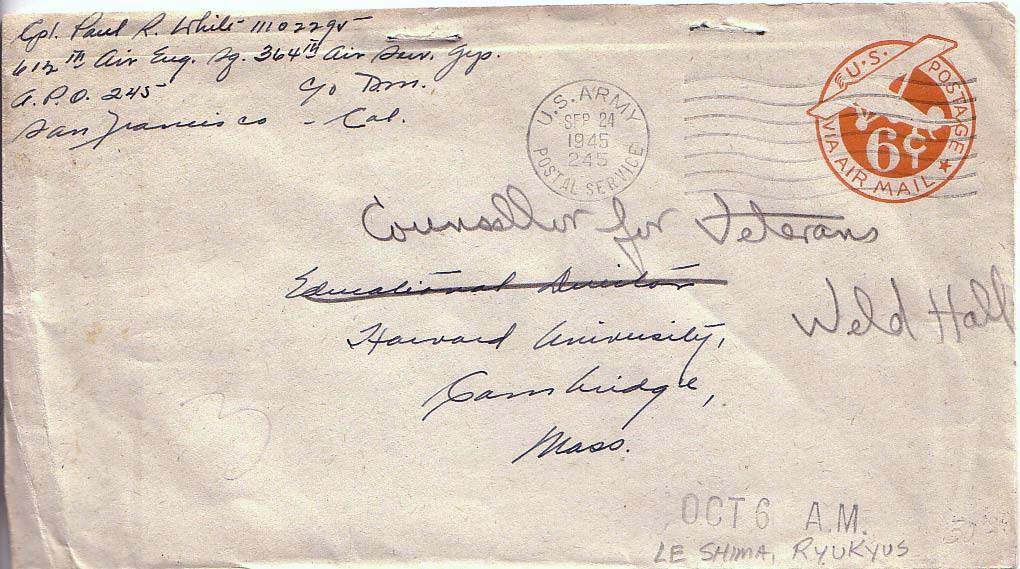 Cpl. Paul R. White 11102295
612th Air Eng. Sq. 364th Air Serv. Grp.
A.P.O. 245 c/o P.M.
San Francisco - Cal.
U.S. ARMY
SEP 24
1945
245
POSTAL SERVICE
U.S. POSTAGE
6¢
VIA AIR MAIL
Counsellor for Veterans
Educational Director
Weld Hall
Harvard University,
Cambridge,
Mass.
OCT 6 A.M.
LE SHIMA, RYUKYUS